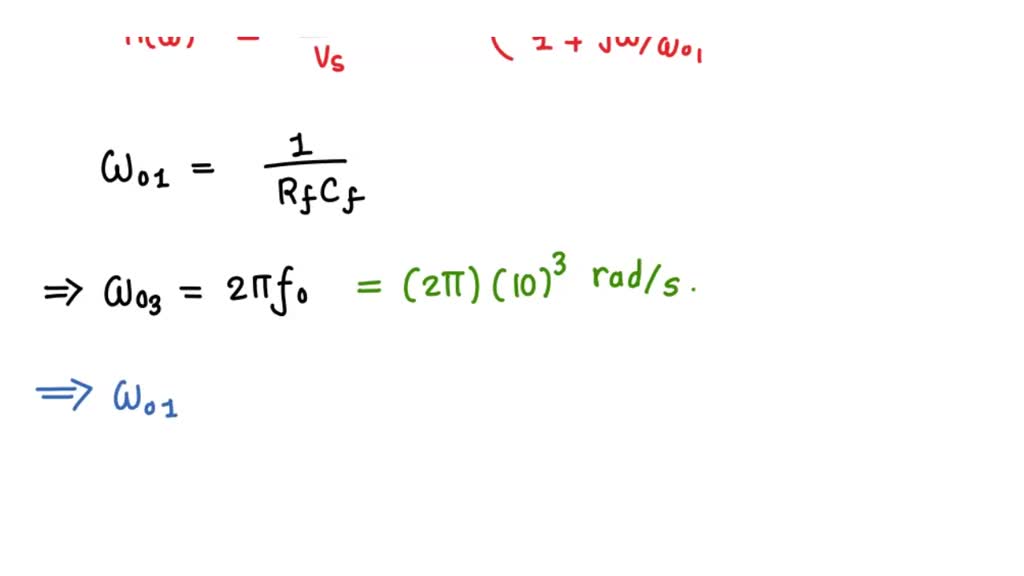 = Vs ( 1 + jω/ω01
ω01 = 1 / RfCf
⇒ ω03 = 2πf0 = (2π) (10)^3 rad/s.
⇒ ω01